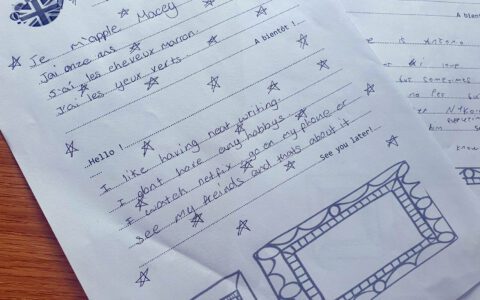 Je m'apple Macey
J'ai onze ans
J'ai les cheveux marron.
J'ai les yeux verts
A bientôt !...
...Hello !
I like having neat writing.
I dont have any hobbys
I watch netflix go on my phone or
see my freinds and thats about it
See you later!...
A bient
is
i love
but sometimes
no Pet
so
know